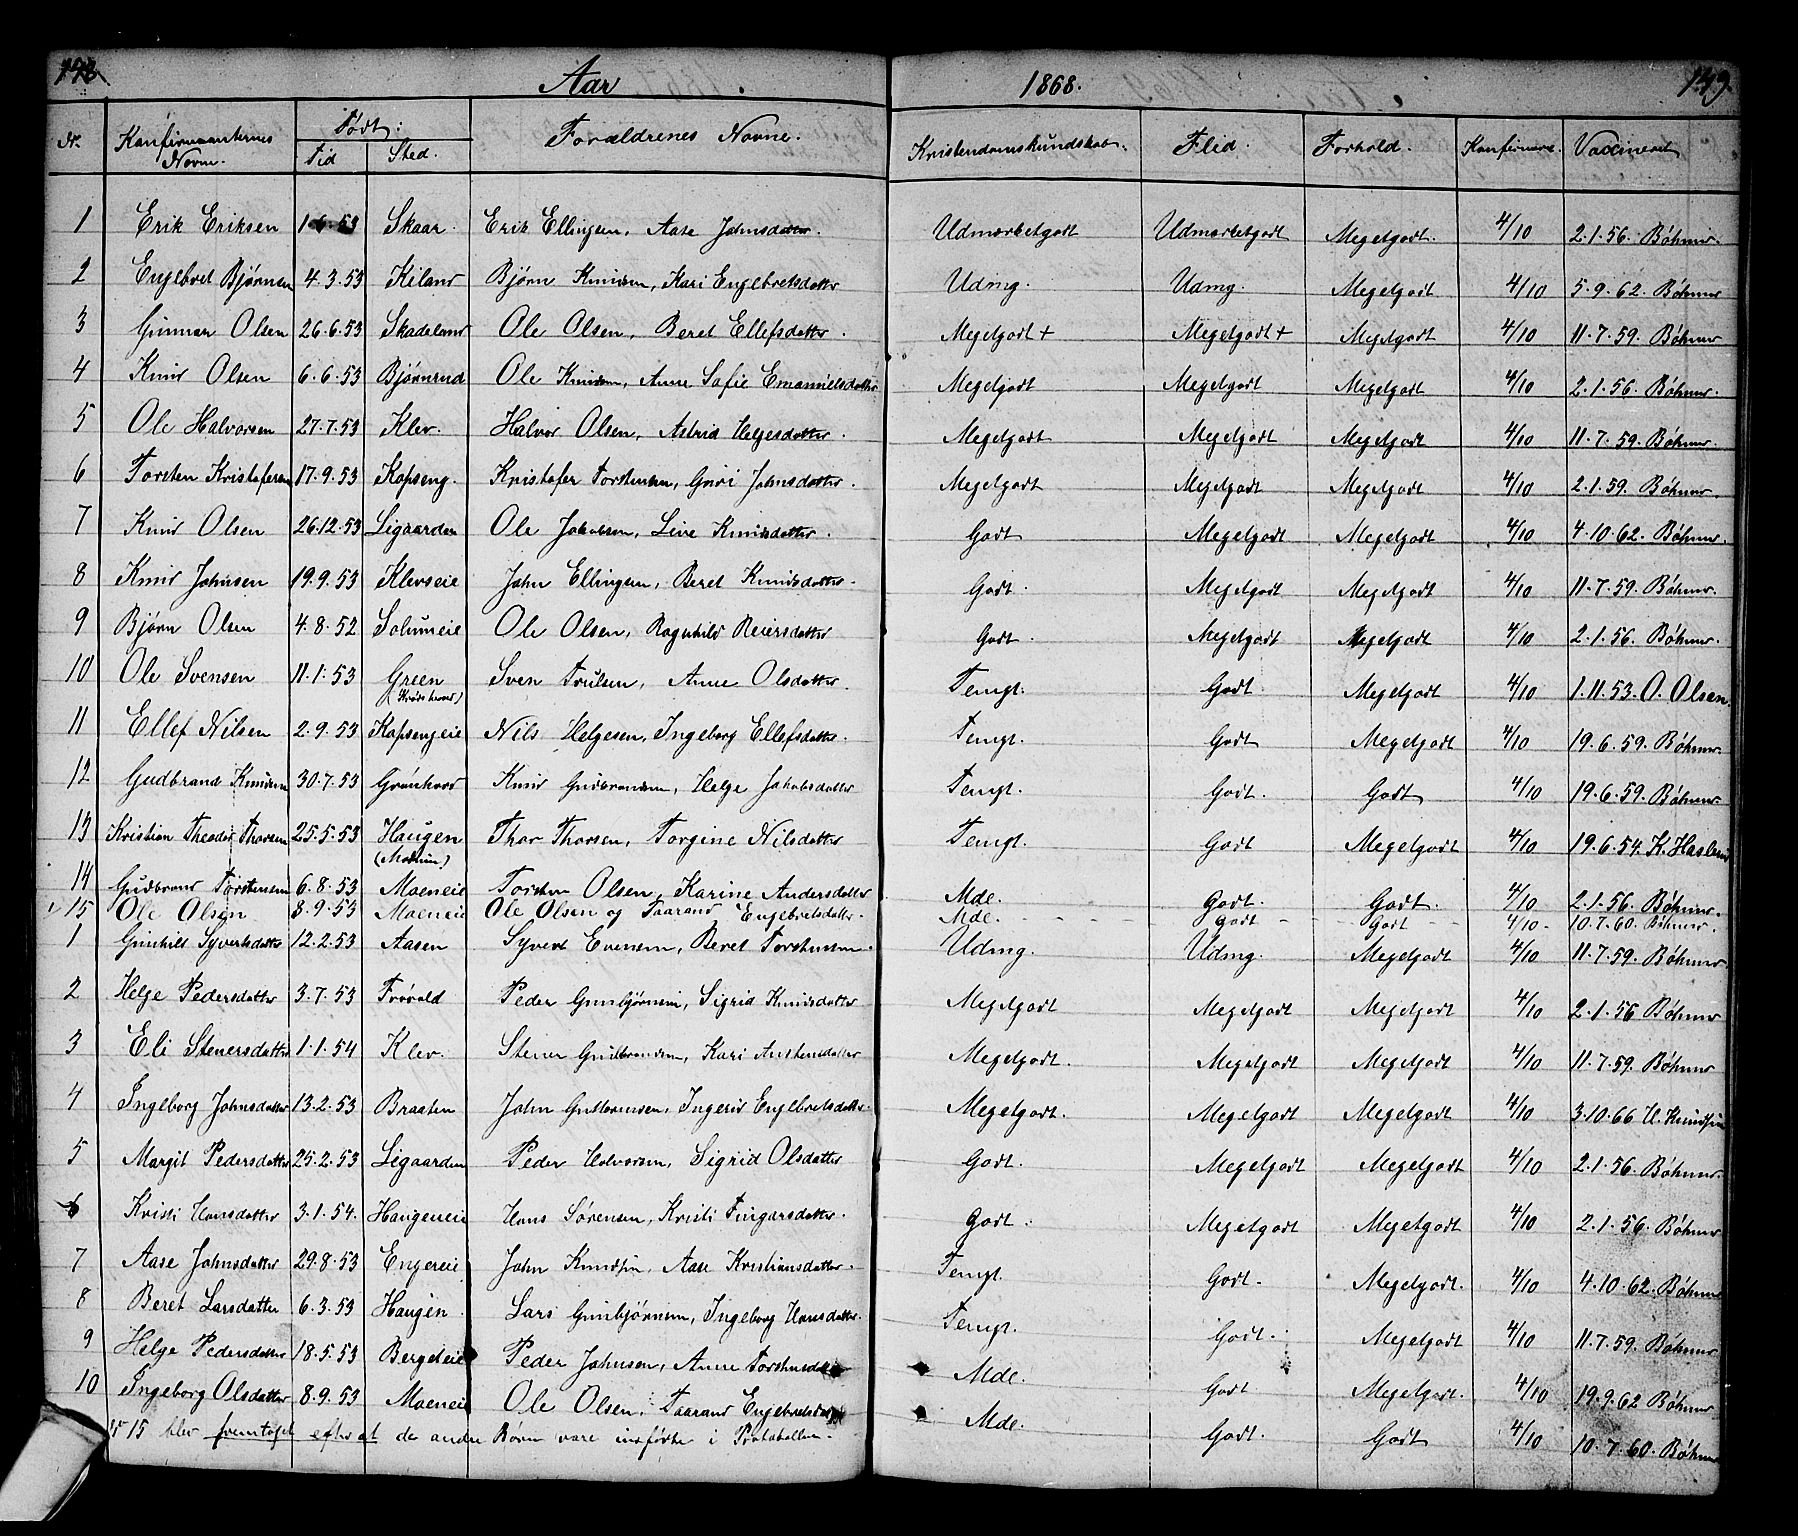 148 Aar 1868. 149.
Nr. Konfirmanternes Navne. Født: Tid Sted. Forældrenes Navne. Kristendomskundskab. Flid. Forhold. Konfirmeret. Vaccineret
1 Erik Eriksen 1.6.53 Skaar. Erik Ellingsen, Aase Johnsdatter. Udmærketgodt Udmærketgodt Megetgodt. 4/10 2.1.56. Bøhmer.
2 Engebret Bjørnsen 4.3.53 Kiland Bjørn Knudsen, Kari Engebretsdatter Udmg. Udmg. Megetgodt 4/10 5.9.62. Bøhmer
3 Gunnar Olsen 26.6.53 Skadeland Ole Olsen, Beret Ellefsdatter. Megetgodt + Megetgodt + Megetgodt 4/10 11.7.59. Bøhmer
4 Knud Olsen 6.6.53 Bjørnrud Ole Knudsen, Anne Sofie Emanuelsdatter Megetgodt Megetgodt Megetgodt 4/10 2.1.56. Bøhmer.
5 Ole Halvorsen 27.7.53 Klev. Halvor Olsen, Astrid Helgesdatter. Megetgodt Megetgodt Megetgodt 4/10 11.7.59. Bøhmer.
6 Torsten Kristofersen 17.9.53 Kopseng. Kristofer Torstensen, Guri Johnsdatter. Megetgodt Megetgodt Megetgodt 4/10 2.1.59. Bøhmer.
7 Knud Olsen 26.12.53 Ligaarden Ole Jakobsen, Live Knudsdatter. Godt Megetgodt Megetgodt 4/10 4.10.62. Bøhmer.
8 Knud Johnsen 19.9.53 Klevseie John Ellingsen, Beret Knudsdatter. Godt. Megetgodt Megetgodt 4/10 11.7.59. Bøhmer.
9 Bjørn Olsen 4.8.52 Solumeie Ole Olsen, Ragnhild Reiersdatter Godt. Megetgodt Megetgodt 4/10 2.1.56. Bøhmer.
10 Ole Svensen 11.1.53 Green Sven Trulsen, Anne Olsdatter. Temgt. Godt. Megetgodt 4/10 1.11.53. O. Olsen
11 Ellef Nilsen 2.9.53 Kopsengeie Nils Helgesen, Ingeborg Ellefsdatter. Temgt. Godt Megetgodt 4/10 19.6.59. Bøhmer.
12 Gudbrand Knudsen 30.7.53 Grønhovd Knud Gudbrandsen, Helge Jakobsdatter Temgt. Godt. Godt 4/10 19.6.59. Bøhmer
13 Kristian Theodor Thorsen 25.5.53 Haugen (Modum) Thor Thorsen, Torgine Nilsdatter Temgt. Godt Megetgodt 4/10 19.6.54. K. Haslend
14 Gudbrand Torstensen 6.8.53 Moeneie Torsten Olsen, Karine Andersdatter Mde. Godt. Godt. 4/10 2.1.56. Bøhmer.
15 Ole Olsen 8.9.53 Moeneie Ole Olsen og Taarand Engebretsdatter. Mde. Godt Godt 4/10 10.7.60. Bøhmer.
1 Gunhild Syvertsdatter 12.2.53 Aasen Syvert Evensen, Beret Torstensen. Udmg. Udmg. Megetgodt 4/10 11.7.59. Bøhmer.
2 Helge Pedersdatter 3.7.53 Trovald Peder Gunbjørnsen, Sigrid Knudsdatter Megetgodt Megetgodt Megetgodt 4/10 2.1.56 Bøhmer
3 Eli Stenersdatter 1.1.54 Klev. Stener Gudbrandsen, Kari Austensdatter Megetgodt. Megetgodt Megetgodt 4/10 11.7.59. Bøhmer
4 Ingeborg Johnsdatter 13.2.53 Braaten John Guttormsen, Ingerid Engebretsdatter. Megetgodt. Megetgodt Megetgodt 4/10 3.10.66 H. Knudsen
5 Margit Pedersdatter 25.2.53 Ligaarden Peder Halvorsen, Sigrid Olsdatter Godt. Megetgodt Megetgodt 4/10 2.1.56. Bøhmer.
6 Kristi Hansdatter 3.1.54. Haugeneie Hans Sørensen, Kristi Fingarsdatter. Godt. Megetgodt Megetgodt 4/10 2.1.56. Bøhmer
7 Aase Johnsdatter 29.8.53 Engereie John Knudsen, Aase Kristiansdatter. Temgt. Godt. Megetgodt. 4/10 4.10.62. Bøhmer
8 Beret Larsdatter 6.3.53 Haugen Lars Gunbjørnsen, Ingeborg Hansdatter. Temgt. Godt. Megetgodt 4/10 11.7.59. Bøhmer
9 Helge Pedersdatter 18.5.53 Bergeteie Peder Johnsen, Anne Torstensdatter Mde. Godt Megetgodt. 4/10 19.9.62 Bøhmer
10 Ingeborg Olsdatter 8.9.53 Moeneie Ole Olsen, Taarand Engebretsdatter Mde. Godt. Godt 4/10 10.7.60. Bøhmer
N 15 blev fremtaget efter at de andre Børn vare indførte i Protokollen.